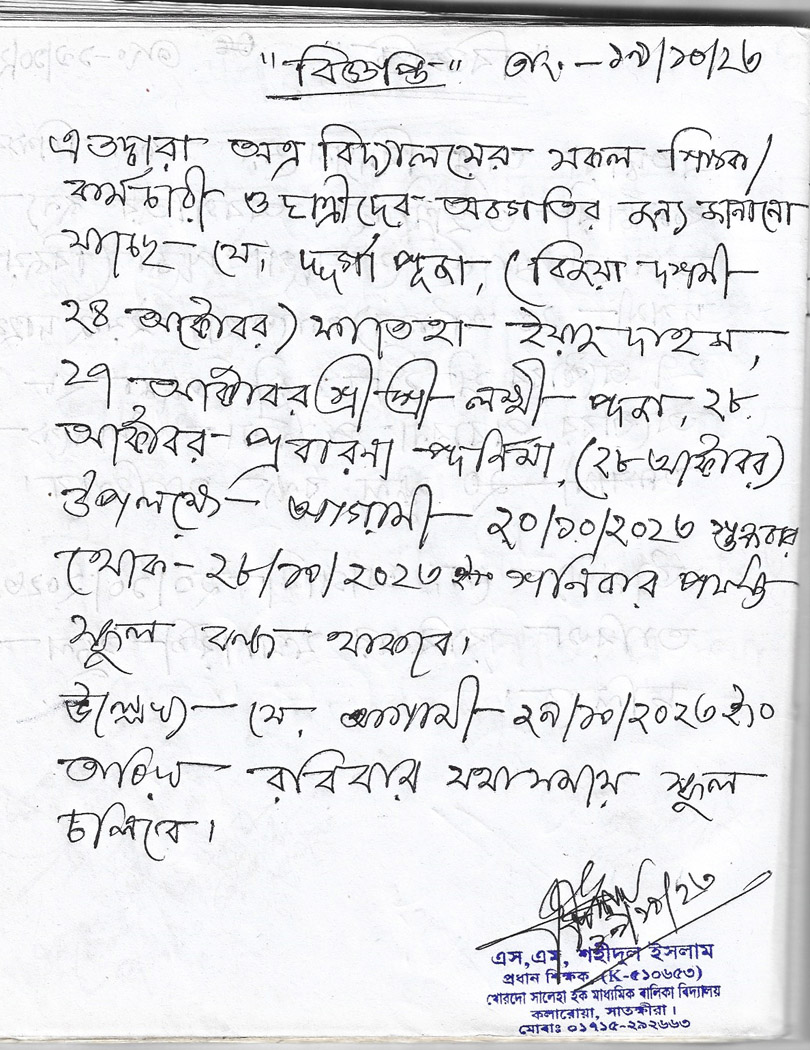 "বিজ্ঞপ্তি" তাং - ১৯/১০/২৩
এতদ্বারা অত্র বিদ্যালয়ের সকল শিক্ষক/
কর্মচারী ও ছাত্রীদের অবগতির জন্য জানানো
যাচ্ছে যে, দূর্গা পূজা, (বিজয়া দশমী
২৪ অক্টোবর) ফাতেহা ইয়াজ দাহম,
২৭ অক্টোবর শ্রী শ্রী লক্ষ্মী পূজা, ২৮
অক্টোবর প্রবারনা পূর্নিমা, (২৮ অক্টোবর)
উপলক্ষ্যে আগামী - ২০/১০/২০২৩ শুক্রবার
থেকে - ২৮/১০/২০২৩ ইং শনিবার পর্যন্ত
স্কুল বন্ধ থাকবে।
উল্লেখ্য যে, আগামী - ২৯/১০/২০২৩ ইং
তারিখ রবিবার যথাসময়ে স্কুল
চলিবে।
১৯/১০/২৩
এস,এম, শহীদুল ইসলাম
প্রধান শিক্ষক (K-৫১০৬৫৩)
খোরদো সালেহা হক মাধ্যমিক বালিকা বিদ্যালয়
কলারোয়া, সাতক্ষীরা।
মোবাঃ ০১৭১৫-২৯২৬৬৩